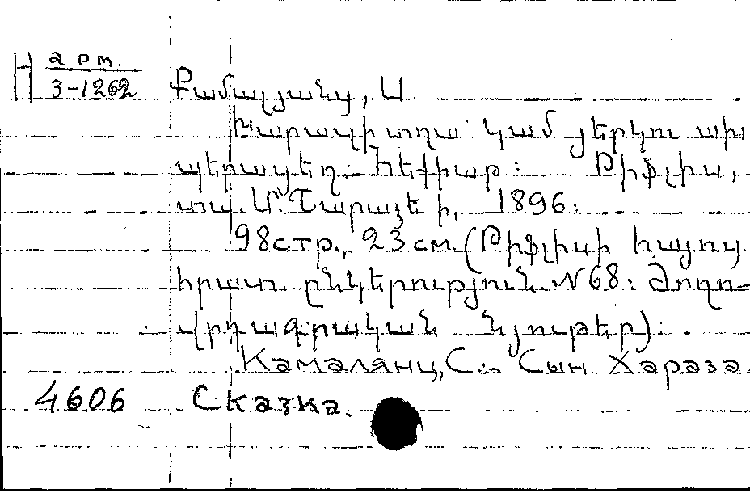 H арт. 3-1262
Քամալյանց, Ս
Խարազի տղա կամ յերկու ախ
պերացեղ. հեքիաթ: Թիֆլիս,
տպ. Մ. Շարաձե ի, 1896:
98стр., 23 см. (Թիֆլիսի հայոց
հրատ. ընկերություն N 68: Ժողո-
վրդագրական նյութեր):
Камалянц, С.. Сын Хараза.
4606 Сказка.